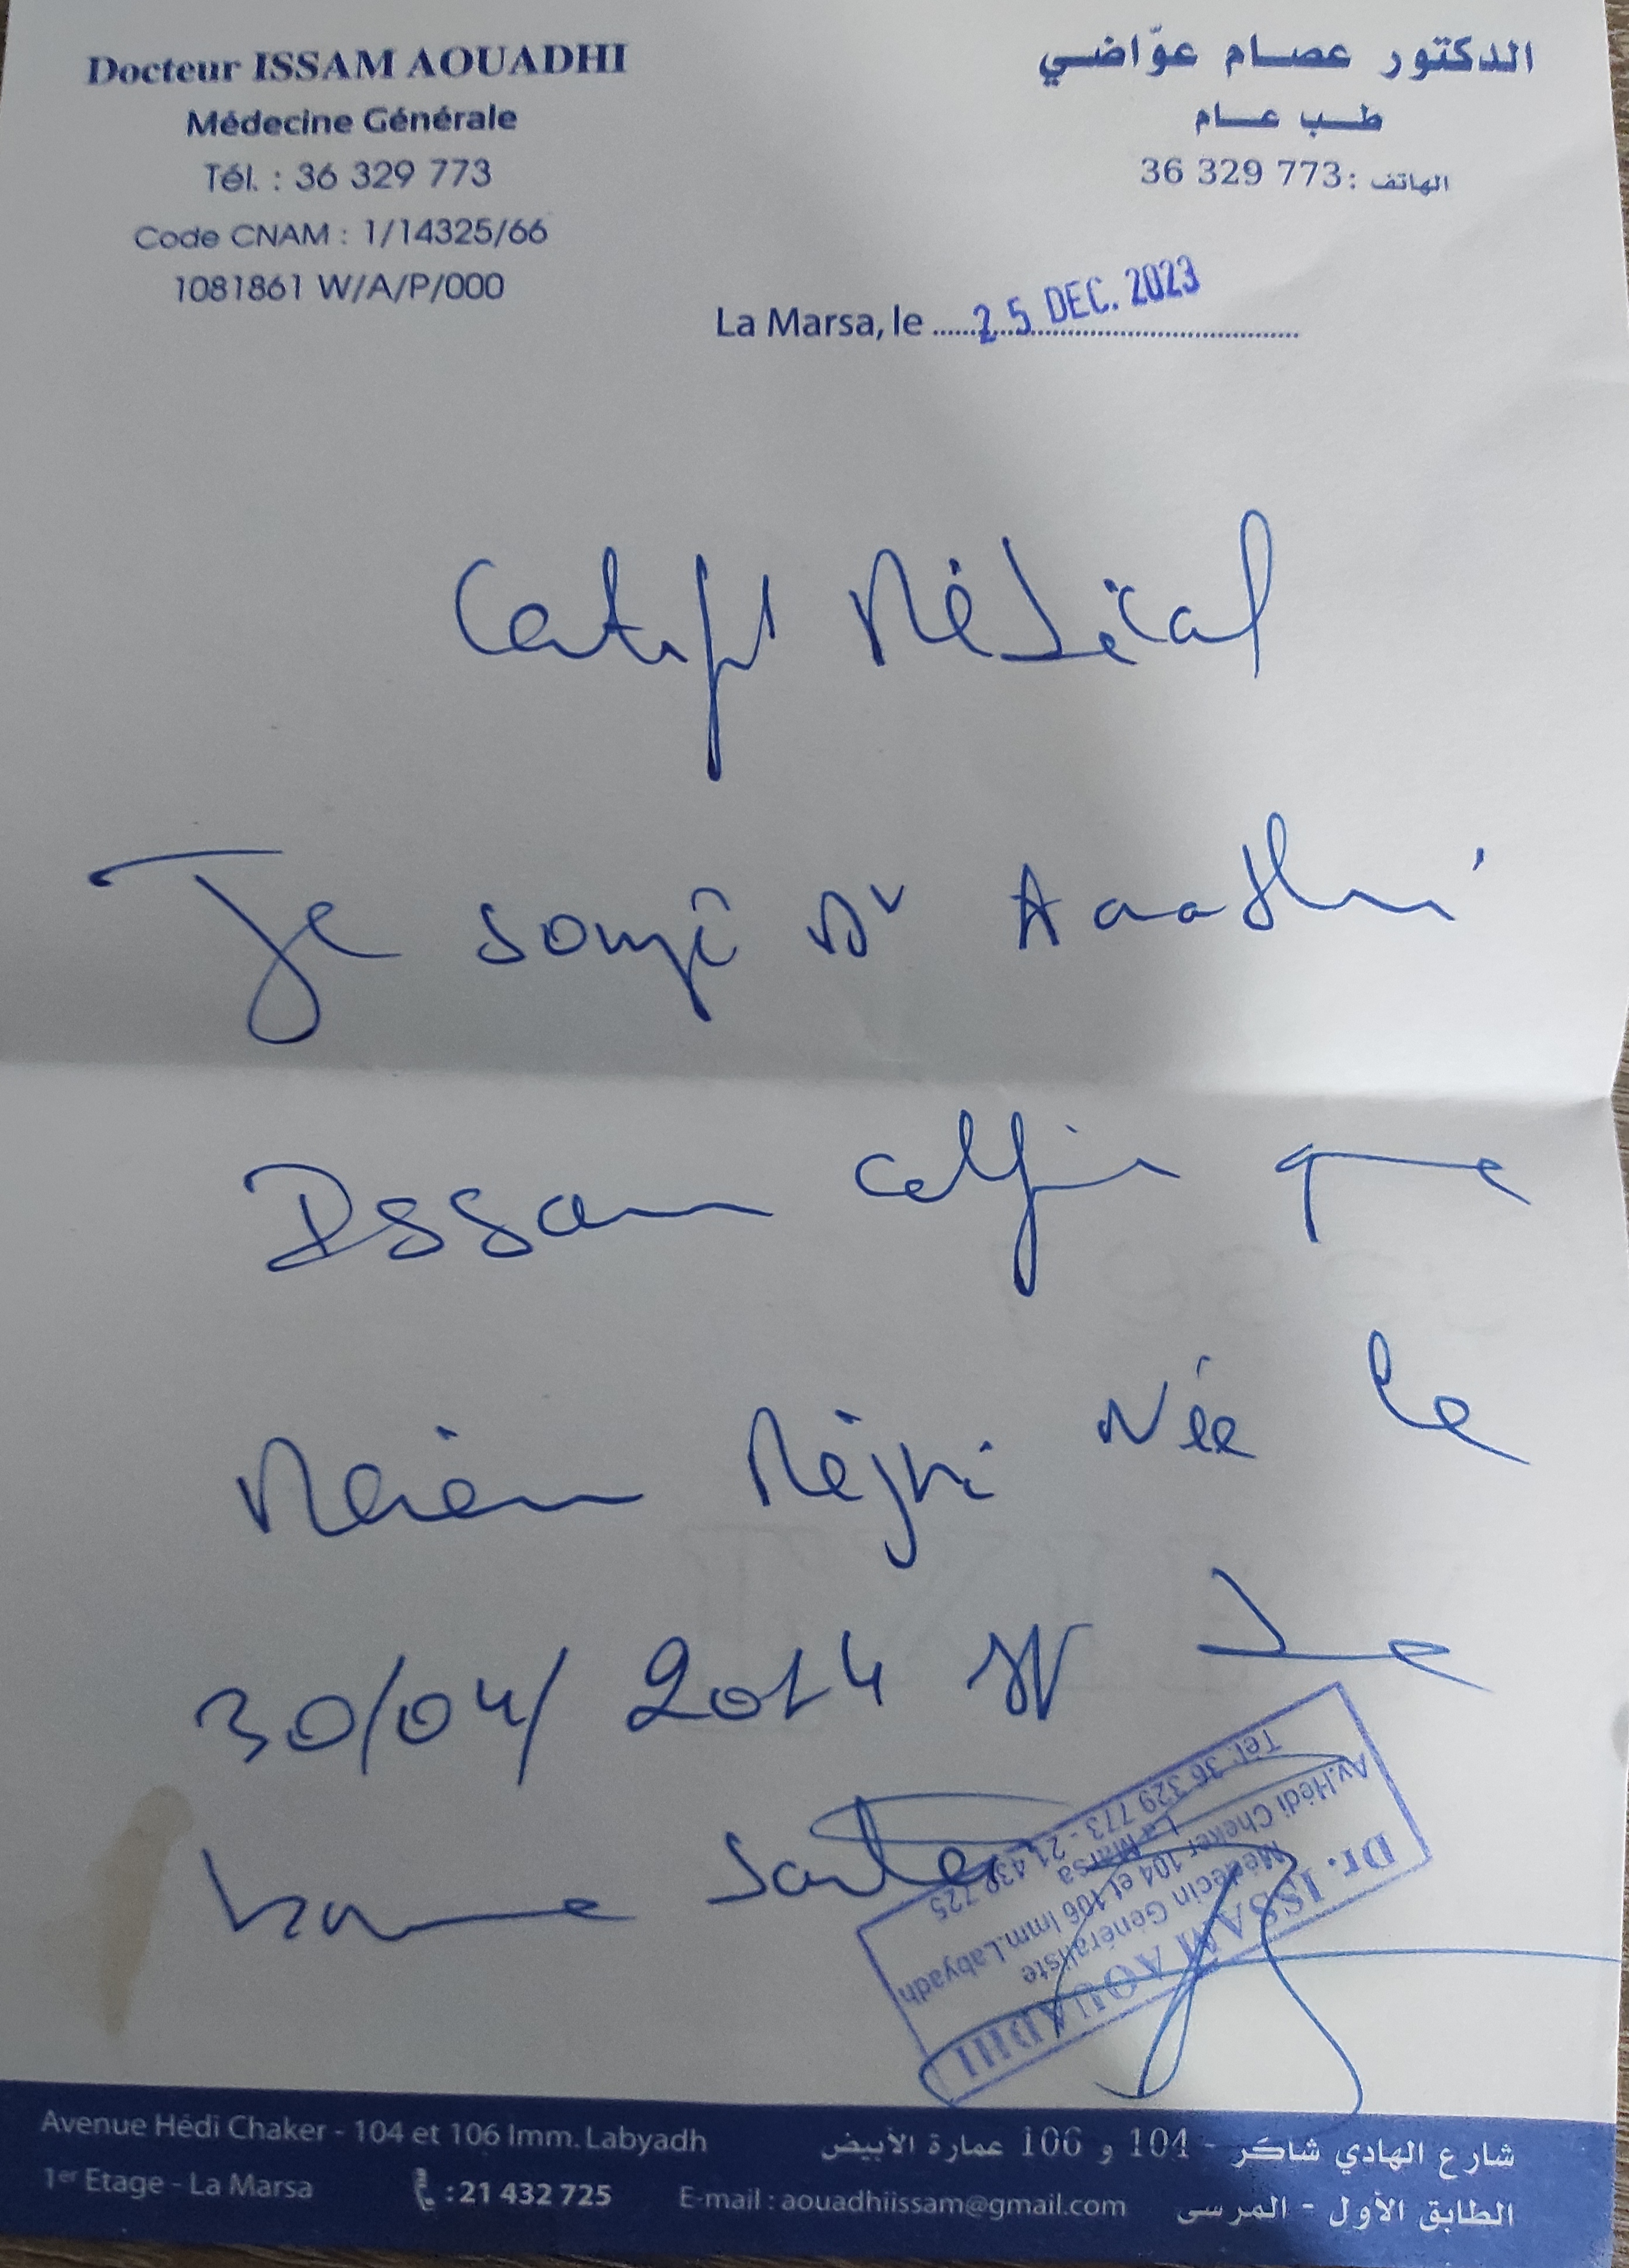 Docteur ISSAM AOUADHI
Médecine Générale
Tél. : 36 329 773
Code CNAM : 1/14325/66
1081861 W/A/P/000
الدكتور عصام عوّاضي
طب عام
الهاتف : 36 329 773
La Marsa, le 25 DEC. 2023
Certificat Médical
Je soussigné Dr Aouadhi
Issam certifie que
Meriem Mejri Née le
30/04/2014 est de
bonne Santé
Dr. ISSAM AOUADHI
Médecin Généraliste
Av.Hédi Cheker 104 et 106 Imm.Labyadh
La Marsa
Tél: 36 329 773 - 21 432 725
Avenue Hédi Chaker - 104 et 106 Imm. Labyadh
1er Etage - La Marsa : 21 432 725 E-mail : aouadhiissam@gmail.com
شارع الهادي شاكر - 104 و 106 عمارة الأبيض
الطابق الأول - المرسى